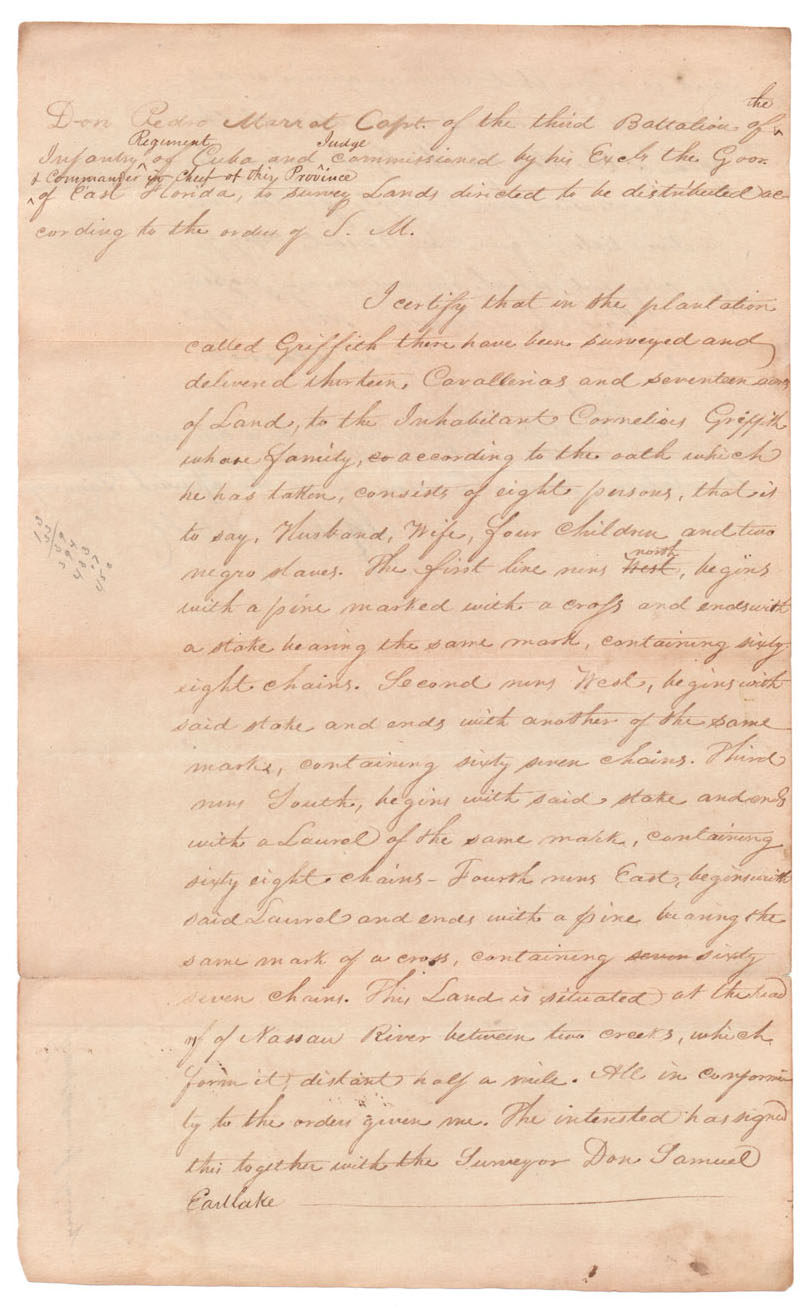 the
Don Pedro Marrot Capt. of the third Battalion of
Regiment Judge
Infantry of Cuba and commissioned by his Excly the Govr.
& Commander in Cheef of this Province
of East Florida, to survey Lands directed to be distributed ac-
cording to the orders of S. M.
I certify that in the plantation
called Griffith there have been surveyed and
delivered thirteen, Cavallerias and seventeen acres
of Land, to the Inhabitant Cornelius Griffith
whose family, co according to the oath which
he has taken, consists of eight persons, that is
to say, Husband, Wife, four Children and two
north
negro slaves. The first line runs West, begins
with a pine marked with a cross and ends with
a stake bearing the same mark, containing sixty
eight chains. Second runs West, begins with
said stake and ends with another of the same
mark, containing sixty seven chains. Third
runs South, begins with said stake and ends
with a Laurel of the same mark, containing
sixty eight chains - Fourth runs East, begins with
said Laurel and ends with a pine bearing the
same mark of a cross, containing seven sixty
seven chains. This Land is situated at the head
of of Nassau River between two creeks, which
form it, distant half a mile. All in conformi
ty to the orders given me. The interested has signed
this together with the Surveyor Don Samuel
Eastlake
13
33
39
394
433
17
450